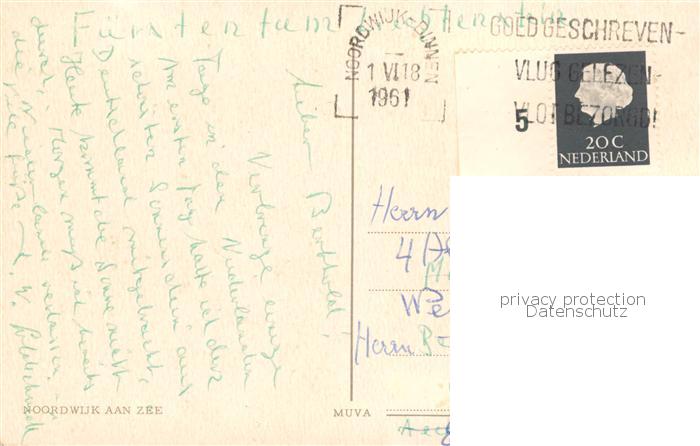 Fürstentum Liechtenstein
NOORDWIJK-BINNEN
1 VI 18
1961
GOED GESCHREVEN-
VLUG GELEZEN-
VLOT BEZORGD!
5
20 C
NEDERLAND
Lieber Berthold,
Verbringe einige
Tage in den Niederlanden
Am ersten Tag hatte ich den
schönsten Sonnenschein aus
Deutschland mitgebracht.
Heute kommt die Sonne nicht
durch. Morgen muss ich bereits
die Niederlande verlassen.
Viele Grüße
Herrn
4
We
Herrn B
privacy protection
Datenschutz
NOORDWIJK AAN ZEE
MUVA